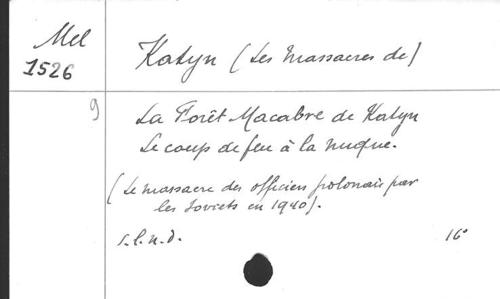 Mel
1526
Katyn (Les Massacres de)
9
La Forêt Macabre de Katyn
Le coup de feu à la nuque.
(Le massacre des officiers polonais par
les Soviets en 1940).
s.l.n.d.
16°